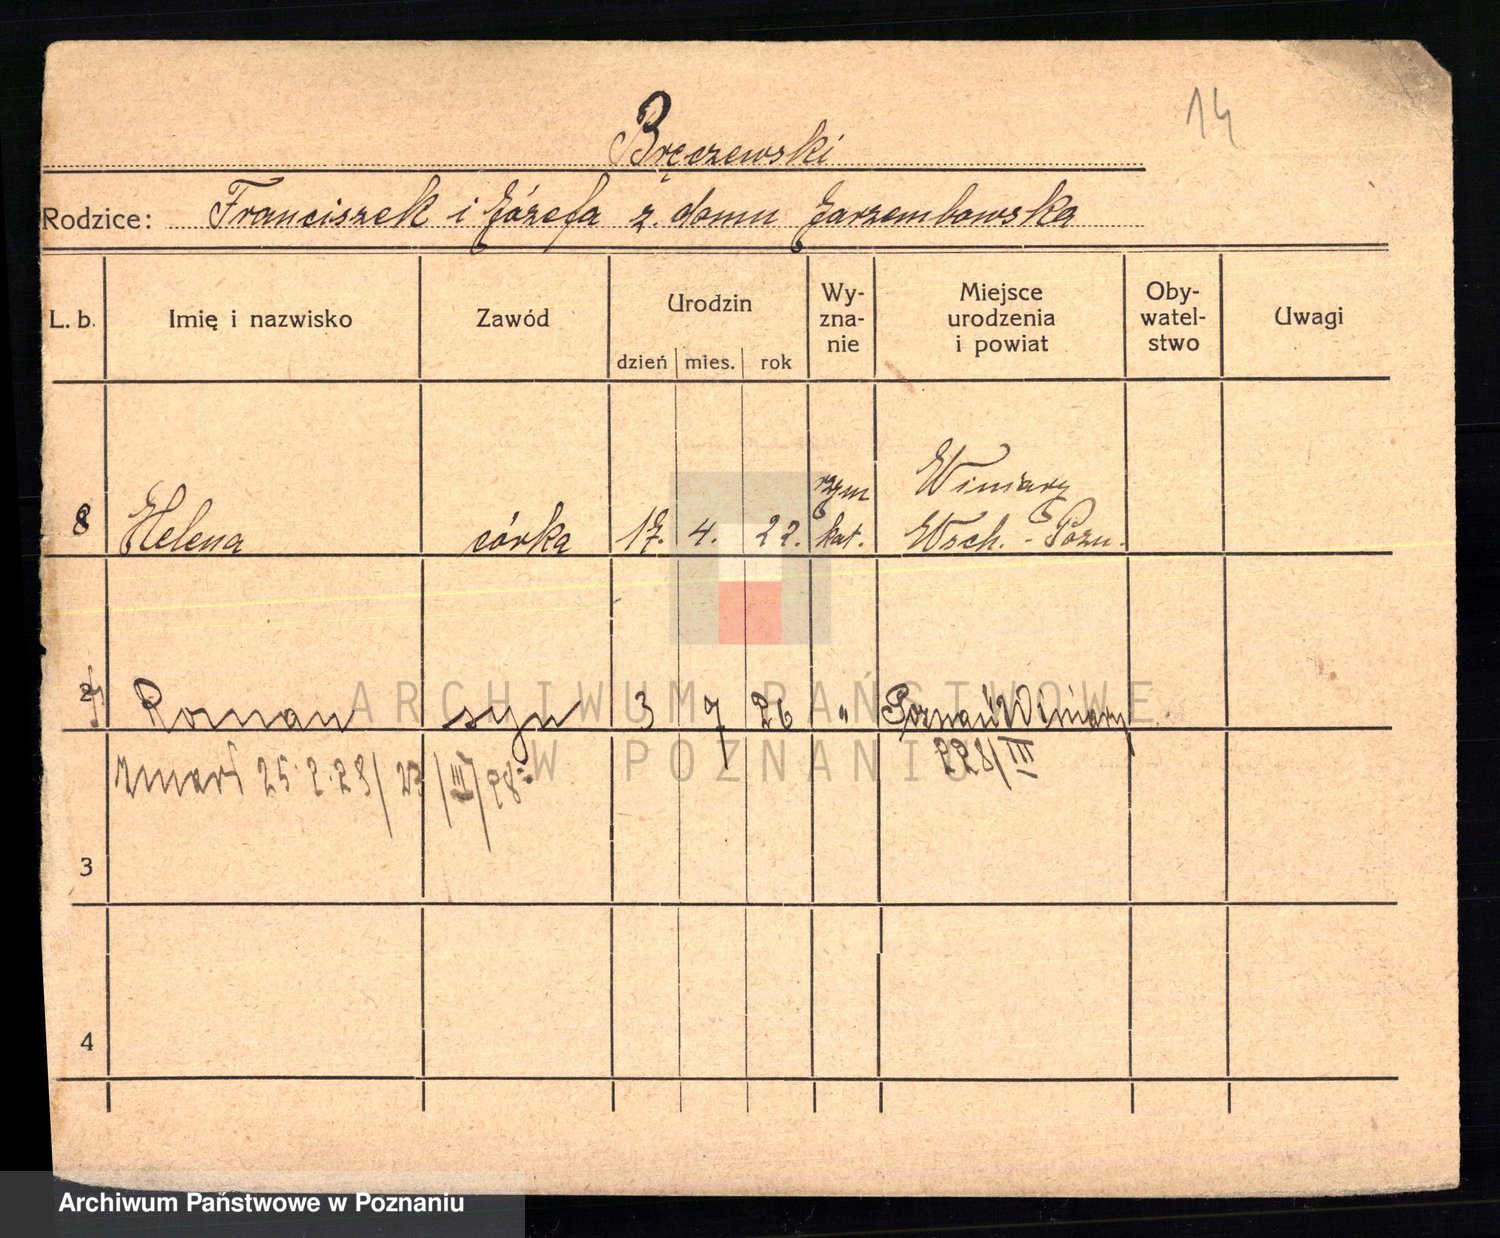 14
Bręczewski
Rodzice: Franciszek i Józefa z. domu Jarzembowska
L. b. Imię i nazwisko Zawód Urodzin dzień mies. rok Wy-zna-nie Miejsce urodzenia i powiat Oby-watel-stwo Uwagi
rzym Winiary
8 Helena córka 17. 4. 22. kat. Wsch. - Pozn.
Roman syn 3 7 26 " Poznań Winiary
zmarł 25. 2. 28/ /III/28. 228/III
3
4
ARCHIWUM PAŃSTWOWE
W POZNANIU
Archiwum Państwowe w Poznaniu